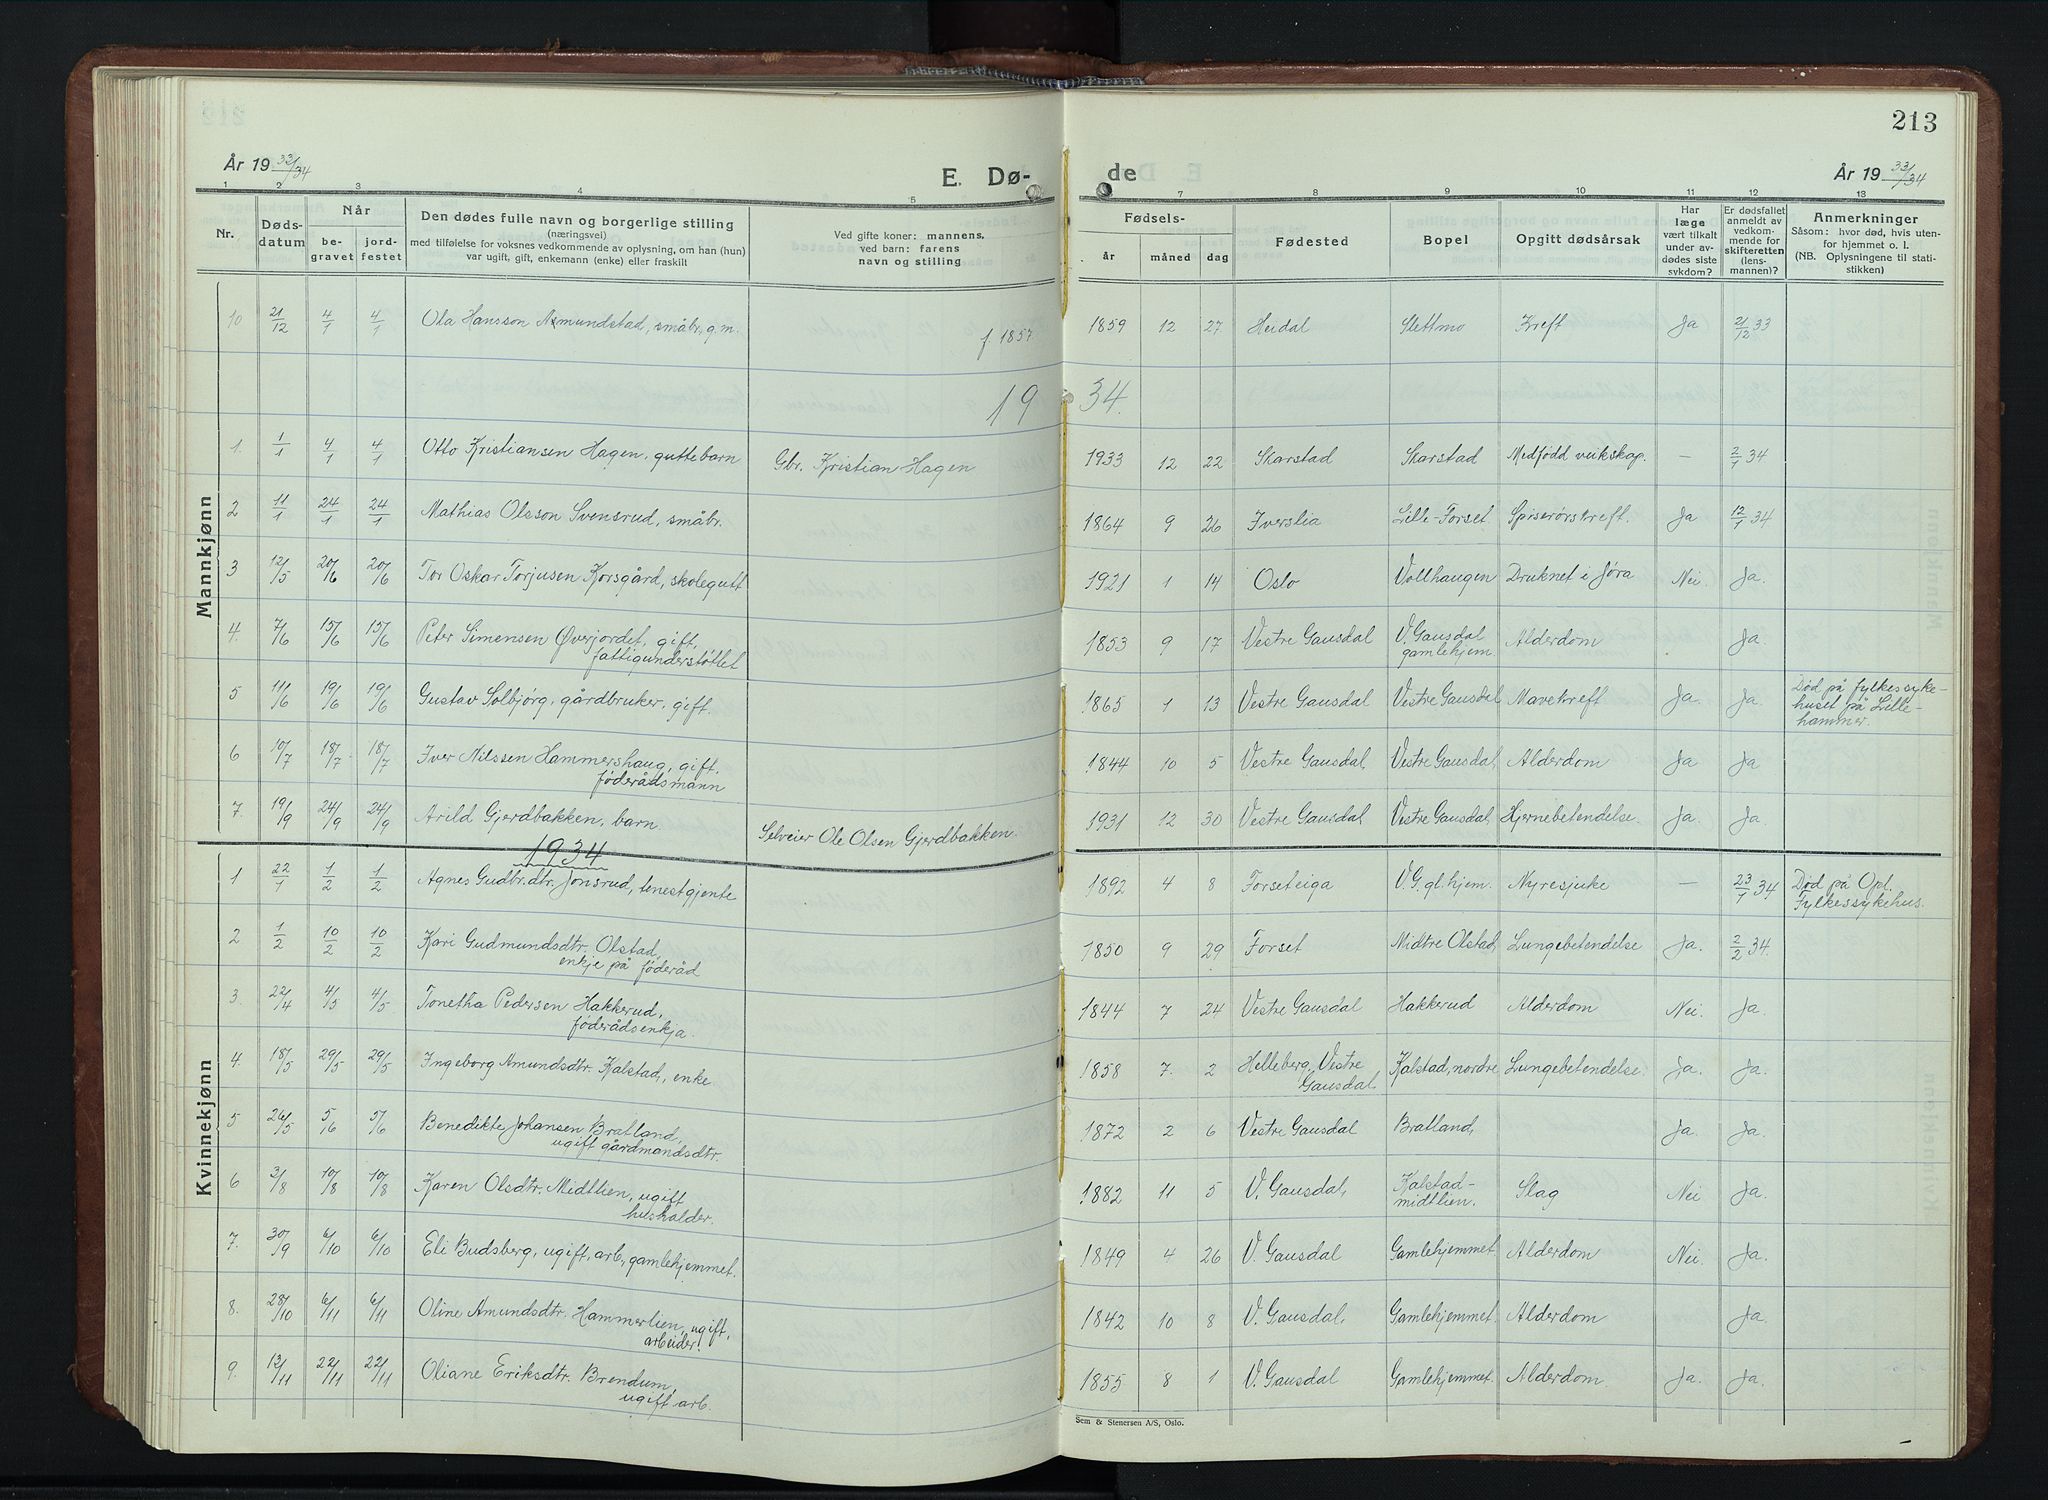 213
År 19 33/34
E. Dø-
de
År 19 33/34
1 2 3 4 5 7 8 9 10 11 12 13
Nr.
Døds-
datum
Når
be-
gravet
jord-
festet
Den dødes fulle navn og borgerlige stilling
(næringsvei)
med tilføielse for voksnes vedkommende av oplysning, om han (hun)
var ugift, gift, enkemann (enke) eller fraskilt
Ved gifte koner: mannens,
ved barn: farens
navn og stilling
Fødsels-
år måned dag
Fødested
Bopel
Opgitt dødsårsak
Har
læge
vært tilkalt
under av-
dødes siste
sykdom?
Er dødsfallet
anmeldt av
vedkom-
mende for
skifteretten
(lens-
mannen)?
Anmerkninger
Såsom: hvor død, hvis uten-
for hjemmet o. l.
(NB. Oplysningene til stati-
stikken)
Mannkjønn
10 21/12 4/1 4/1 Ola Hansson Åmundstad, småbr. g.m. f. 1857 1859 12 27 Heidal Slettmo Kreft Ja 21/12 33
1934.
1. 1/1 4/1 4/1 Otto Kristiansen Hagen, guttebarn Gbr. Kristian Hagen 1933 12 22 Skarstad Skarstad Medfødd veikskap. — 2/1 34
2 11/1 24/1 24/1 Mathias Olsson Svensrud, småbr. 1864 9 26 Iverslia Lille-Forset Spiserørskreft. Ja 12/1 34
3 12/5 20/6 20/6 Tor Oskar Torjusen Korsgård, skolegutt 1921 1 14 Oslo Vollhaugen Druknet i Jøra Nei. Ja.
4. 7/6 15/6 15/6 Peter Simensen Øverjordet, gift, 1853 9 17 Vestre Gausdal V. Gausdal Alderdom Ja.
fattigunderstøttet gamlehjem.
5 11/6 19/6 19/6 Gustav Solbjørg, gårdbruker, gift. 1865 1 13 Vestre Gausdal Vestre Gausdal Mavekreft Ja. Ja. Død på fylkessyke-
huset på Lille-
hammer.
6 10/7 18/7 18/7 Iver Nilssen Hammershaug, gift, 1844 10 5 Vestre Gausdal Vestre Gausdal, Alderdom Ja Ja
føderådsmann
7. 19/9 24/9 24/9 Arild Gjerdbakken, barn. Selveier Ole Olsen Gjerdbakken. 1931 12 30 Vestre Gausdal, Vestre Gausdal, Hjernebetendelse. Ja. Ja.
1934
Kvinnekjønn
1 22/1 1/2 1/2 Agnes Gudbr.dtr. Jonsrud, tenestgjente 1892 4 8 Forseteiga V.G. gl.hjem. Nyresjuke — 23/1 34 Død på Opl.
Fylkessykehus.
2 1/2 10/2 10/2 Kari Gudmundsdtr. Olstad, 1850 9 29 Forset Midtre Olstad, Lungebetendelse Ja. 2/2 34.
enkje på føderåd
3. 22/4 4/5 4/5 Tonetha Pedersen Hakkerud, 1844 7 24 Vestre Gausdal Hakkerud Alderdom Nei. Ja.
føderådsenkja.
4. 18/5 29/5 29/5 Ingeborg Amundsdtr. Kalstad, enke. 1858 7. 2 Helleberg, Vestre Kalstad, nordre Lungebetendelse. Ja. Ja.
Gausdal,
5 26/5 5/6 5/6 Benedikte Johansen Bratland, 1872 2 6 Vestre Gausdal Bratland, Ja. Ja.
ugift gårdmandsdtr.
6 3/8 10/8 10/8 Karen Olsdtr. Midtlien, ugift 1882 11 5 V. Gausdal, Kalstad- Slag Nei Ja.
husholder. midtlien.
7. 30/9 6/10 6/10 Eli Budsberg, ugift, arb., gamlehjemmet. 1849 4 26 V. Gausdal Gamlehjemmet Alderdom Nei. Ja.
8. 28/10 6/11 6/11 Oline Amundsdtr. Hammerlien, ugift, 1842 10 8 V. Gausdal, Gamlehjemmet. Alderdom Ja.
arbeider.
9. 13/11 22/11 22/11 Oliane Eriksdtr. Brendum, 1855 8 1 V. Gausdal Gamlehjemmet. Alderdom. Ja. Ja.
ugift arb.
Sem & Stenersen A/S, Oslo.